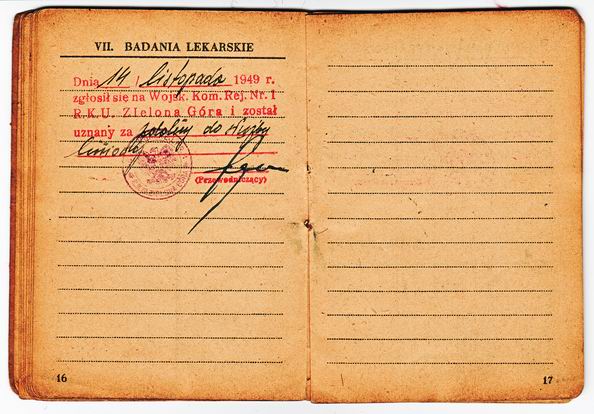 VII. BADANIA LEKARSKIE
Dnia 14 / listopada 1949 r.
zgłosił się na Wojsk. Kom. Rej. Nr. 1
R. K. U. Zielona Góra i został
uznany za zdolny do służby
liniowej
(Przewodniczący)
16
17